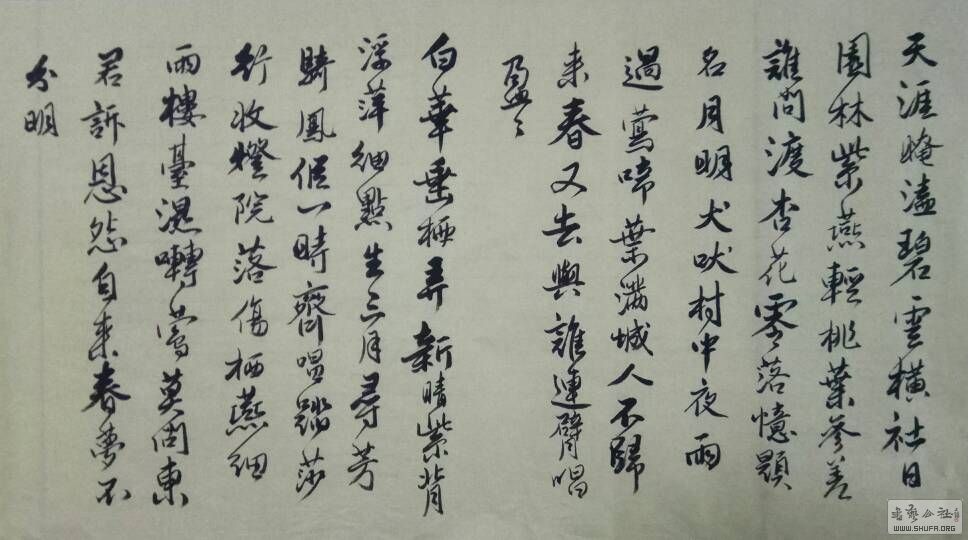 天涯晻溘碧雲横社日
園林紫燕輕桃葉參差
誰問渡杏花零落憶題
名月明犬吠村中夜雨
過鶯啼葉滿城人不歸
来春又去與誰連臂唱
盈々
白華垂栖弄新晴紫背
浮萍細點生三月尋芳
騎鳳侶一時齊唱踏莎
行收燈院落傷栖燕細
雨樓臺濕囀鶯莫問東
君訴恩怨自来春夢不
分明
書藝公社
WWW.SHUFA.ORG